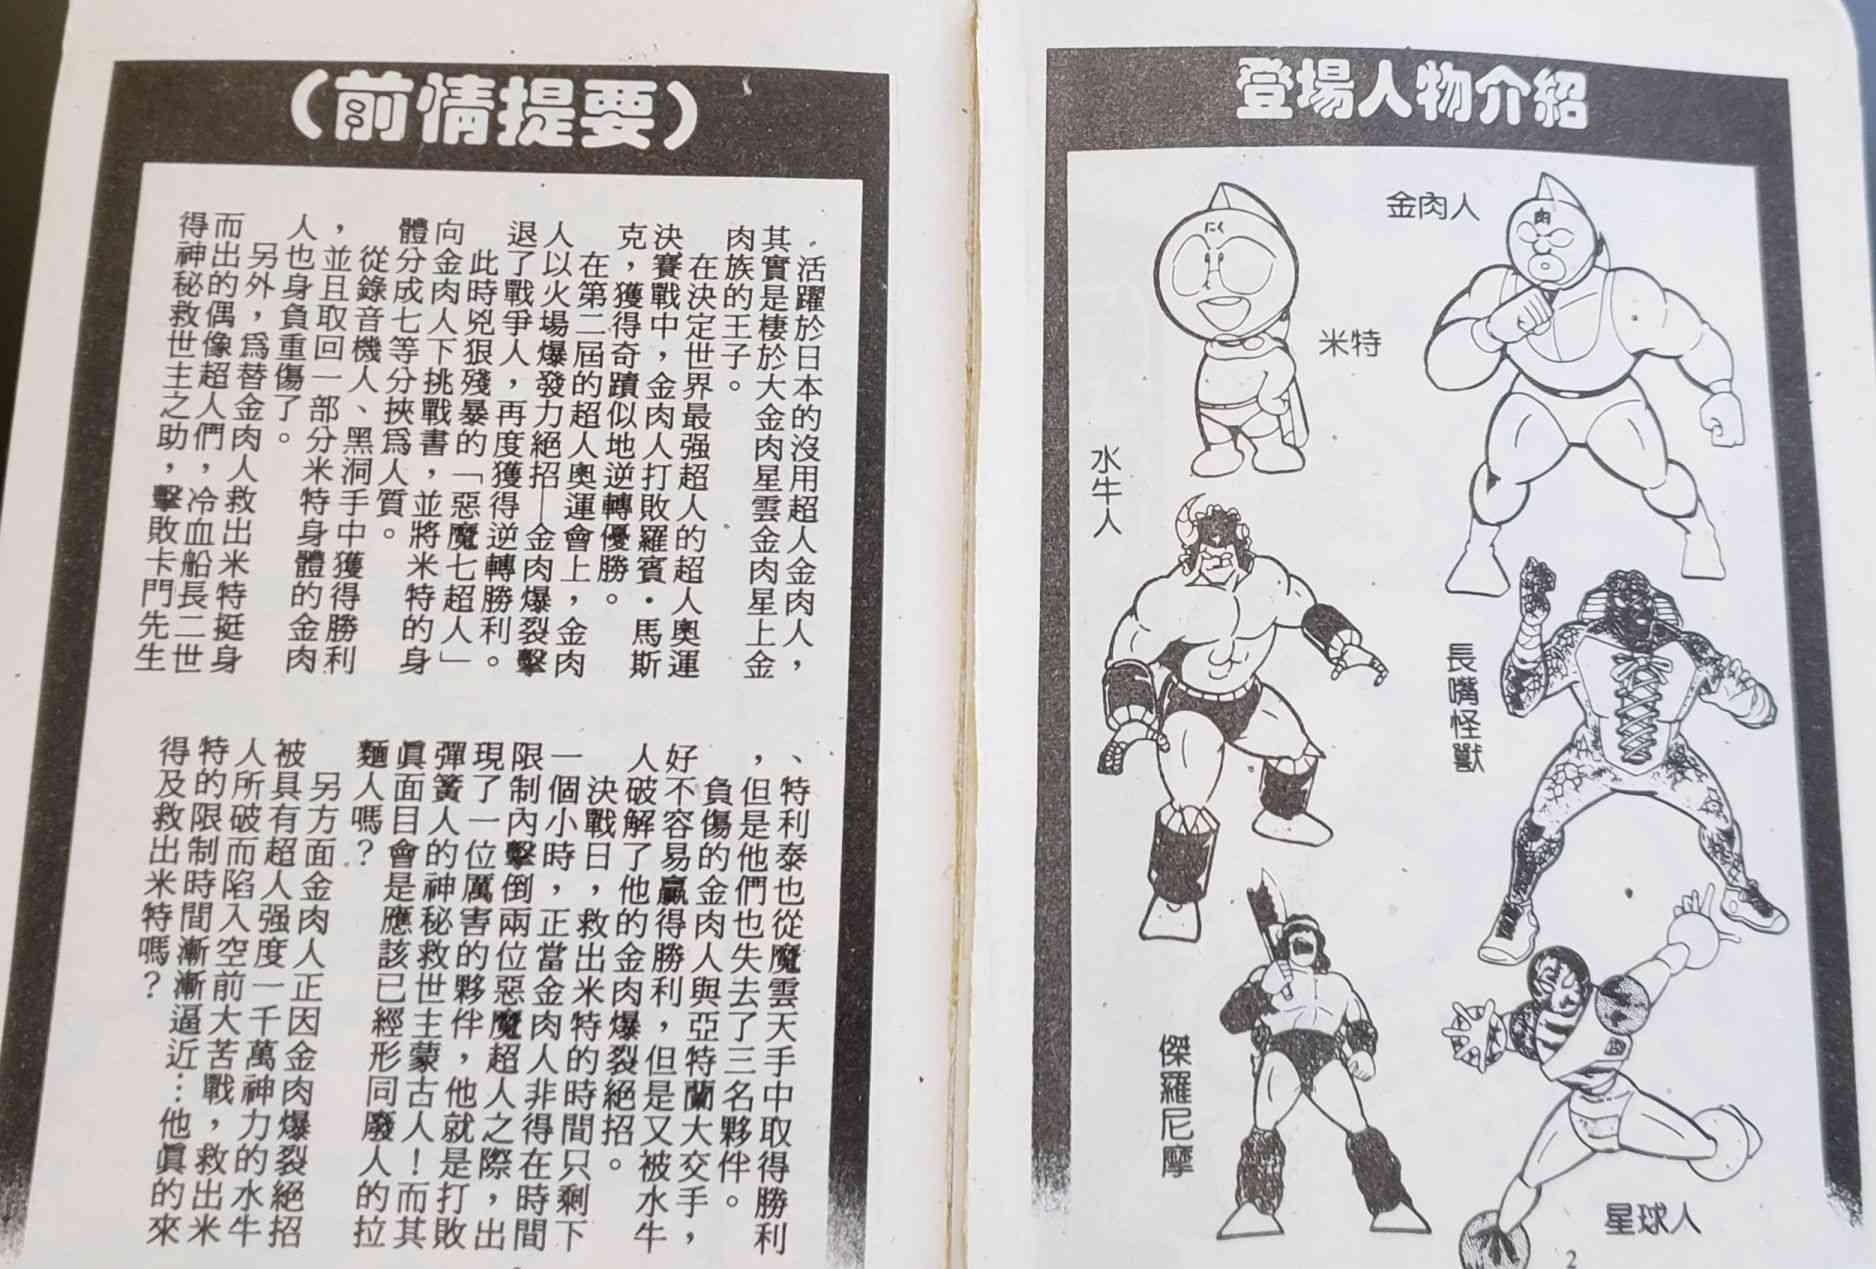 登場人物介紹
金肉人
米特
水牛人
長嘴怪獸
傑羅尼摩
星球人
2
（前情提要）
活躍於日本的沒用超人金肉人，
其實是棲於大金肉星雲金肉星上金
肉族的王子。
在決定世界最强超人的超人奧運
決賽戰中，金肉人打敗羅賓・馬斯
克，獲得奇蹟似地逆轉優勝。
在第二屆的超人奧運會上，金肉
人以火場爆發力絕招—金肉爆裂擊
退了戰爭人，再度獲得逆轉勝利。
此時兇狠殘暴的「惡魔七超人」
向金肉人下挑戰書，並將米特的身
體分成七等分挾爲人質。
從錄音機人、黑洞手中獲得勝利
，並且取回一部分米特身體的金肉
人也身負重傷了。
另外，爲替金肉人救出米特挺身
而出的偶像超人們，冷血船長二世
得神秘救世主之助，擊敗卡門先生
、特利泰也從魔雲天手中取得勝利
，但是他們也失去了三名夥伴。
負傷的金肉人與亞特蘭大交手，
好不容易贏得勝利，但是又被水牛
人破解了他的金肉爆裂絕招。
決戰日，救出米特的時間只剩下
一個小時，正當金肉人非得在時間
限制內擊倒兩位惡魔超人之際，出
現了一位厲害的夥伴，他就是打敗
彈簧人的神秘救世主蒙古人！而其
眞面目會是應該已經形同廢人的拉
麵人嗎？
另方面金肉人正因金肉爆裂絕招
被具有超人强度一千萬神力的水牛
人所破而陷入空前大苦戰，救出米
特的限制時間漸漸逼近…他眞的來
得及救出米特嗎？
肉
にく